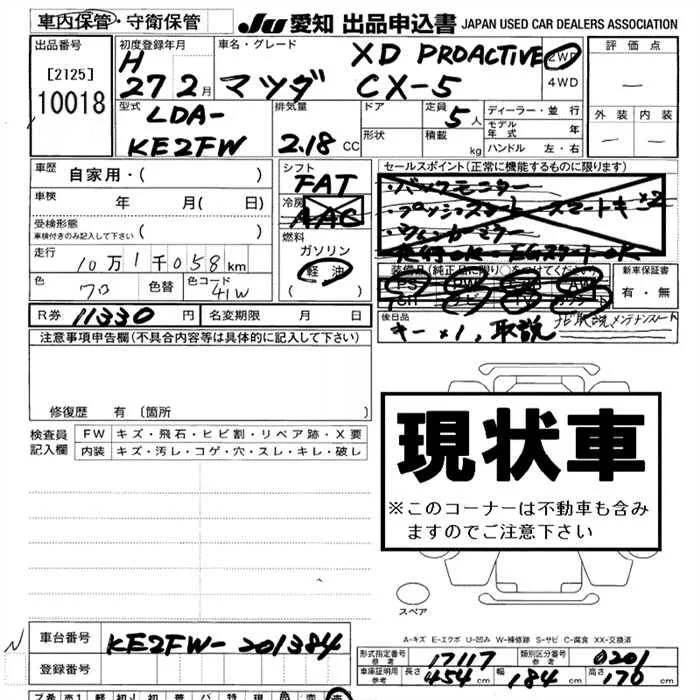 車内保管・守衛保管 JU 愛知 出品申込書 JAPAN USED CAR DEALERS ASSOCIATION
出品番号 初度登録年月 車名・グレード 2WD 4WD 評価点
[2125] H 27 2月 マツダ XD PROACTIVE CX-5 ー
10018
型式 排気量 ドア 定員 5人 ディーラー・並行 外装 内装
LDA- 形状 積載 kg モデル年式 年 ー ー
KE2FW 2.18 CC ハンドル 左・右
車歴 自家用・( ) シフト FAT セールスポイント(正常に機能するものに限ります)
車検 年 月( 日) 冷房 AAC ・バックモニター
受検形態 ・プッシュスタート スマートキー×2
車検付きのみ記入して下さい ( ) 燃料 ガソリン
走行 10万1千058km 軽油 ( )
色 クロ 色替 色コード 41W
装備品(純正品に限り○をつけてください) 新車保証書
PS PW AW 有・無
SR ナビ TV
R券 11330円 名変期限 月 日 後日品 キー×1, 取説 ナビ取説 メンテナンスノート
注意事項申告欄(不具合内容等は具体的に記入して下さい)
修復歴 有 〔箇所 〕
検査員記入欄 FW キズ・飛石・ヒビ割・リペア跡・X要
内装 キズ・汚レ・コゲ・穴・スレ・キレ・破レ
現状車
※このコーナーは不動車も含み
ますのでご注意下さい
スペア
A-キズ E-エクボ U-凹み W-補修跡 S-サビ C-腐食 XX-交換済
N 車台番号 KE2FW-201384
登録番号
形式指定番号 参考 17117 類別区分番号 参考 0201
車庫証明用 参考 長さ 454cm 幅 184cm 高さ 170